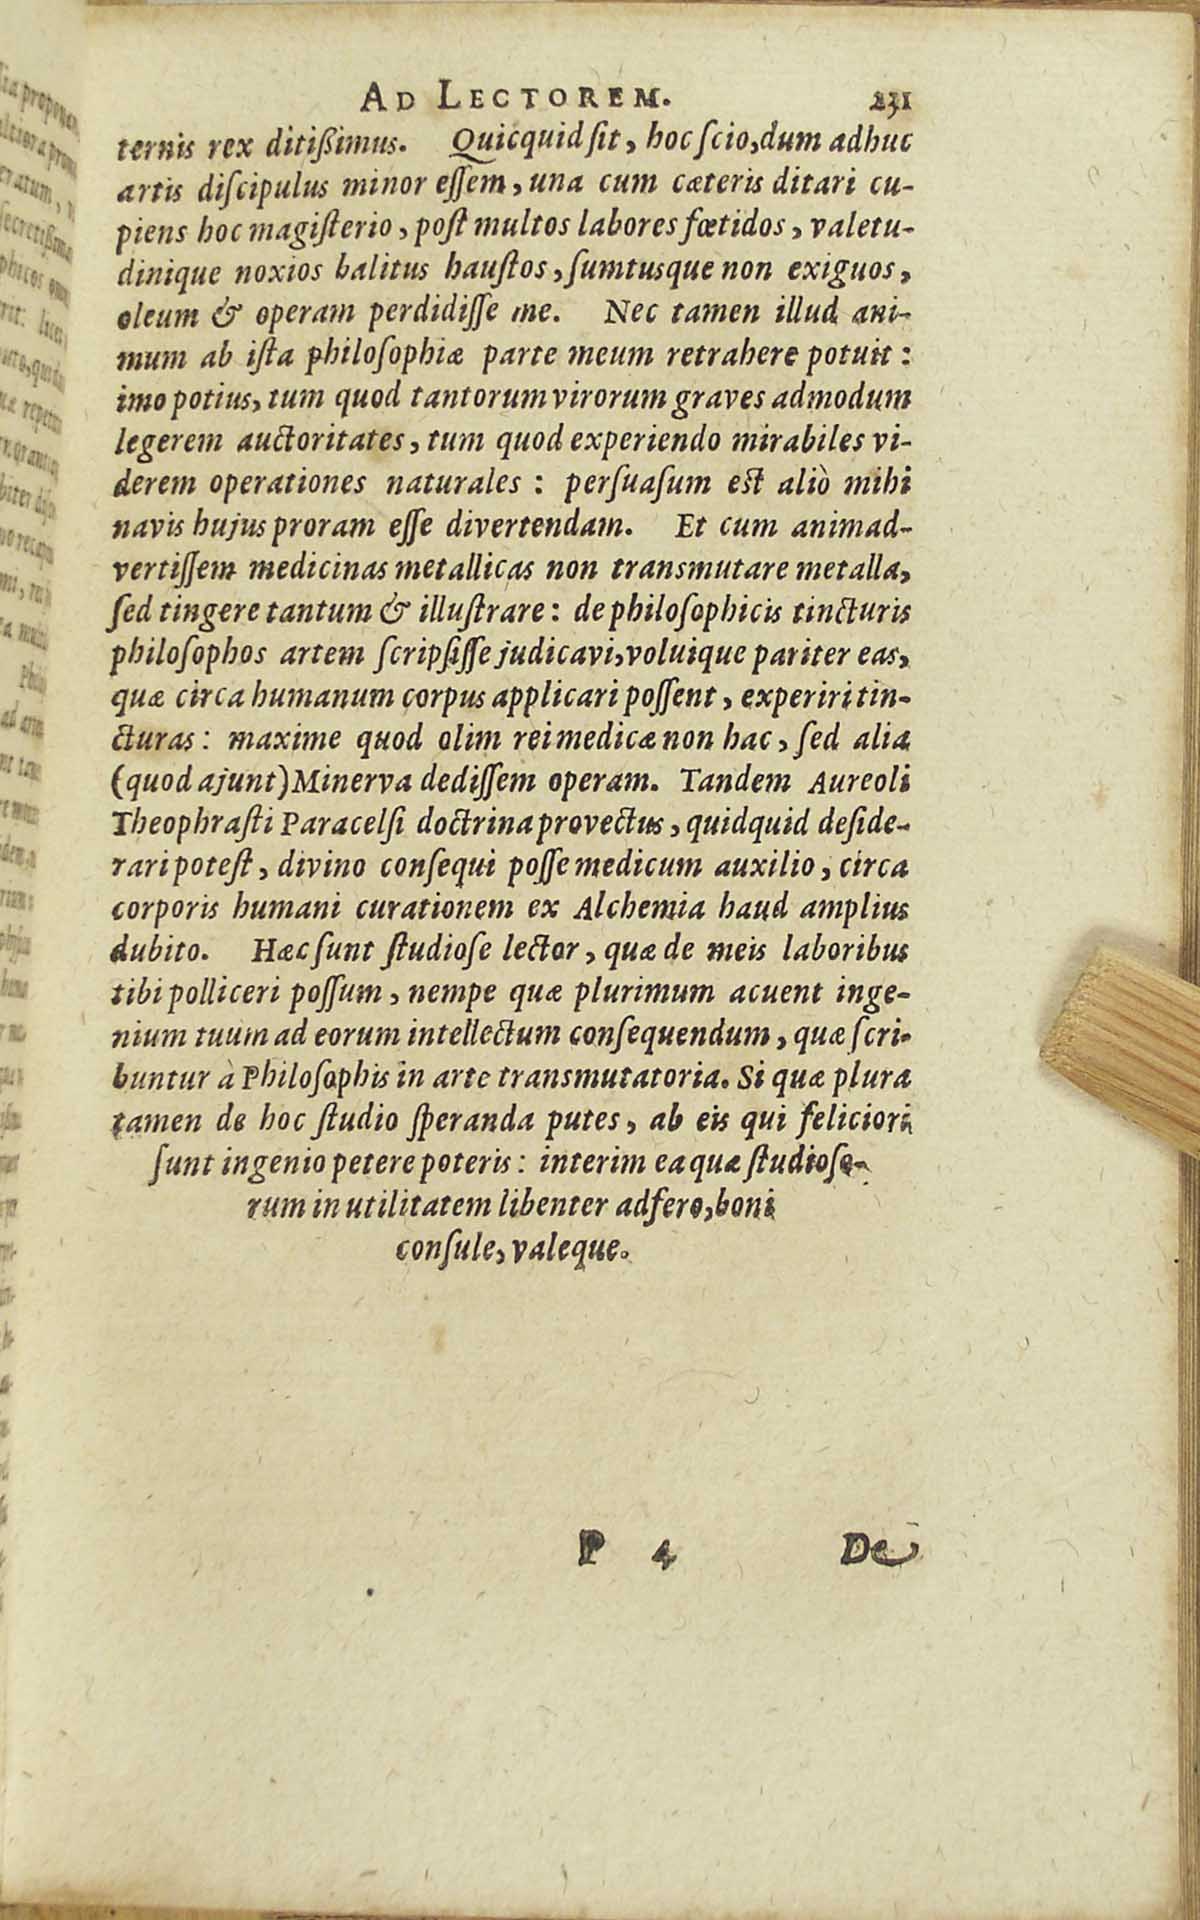 AD LECTOREM. 231
ternis rex ditißimus. Quicquid ſit, hoc ſcio, dum adhuc
artis diſcipulus minor eſſem, una cum cæteris ditari cu-
piens hoc magiſterio, poſt multos labores fœtidos, valetu-
dinique noxios halitus hauſtos, ſumtusque non exiguos,
oleum & operam perdidiſſe me. Nec tamen illud ani-
mum ab iſta philoſophiæ parte meum retrahere potuit:
imo potius, tum quod tantorum virorum graves admodum
legerem auctoritates, tum quod experiendo mirabiles vi-
derem operationes naturales: perſuaſum eſt aliò mihi
navis hujus proram eſſe divertendam. Et cum animad-
vertiſſem medicinas metallicas non transmutare metalla,
ſed tingere tantum & illuſtrare: de philoſophicis tincturis
philoſophos artem ſcripſiſſe judicavi, voluique pariter eas,
quæ circa humanum corpus applicari poſſent, experiri tin-
cturas: maxime quod olim rei medicæ non hac, ſed alia
(quod ajunt) Minerva dediſſem operam. Tandem Aureoli
Theophraſti Paracelſi doctrina provectus, quidquid deſide-
rari poteſt, divino conſequi poſſe medicum auxilio, circa
corporis humani curationem ex Alchemia haud amplius
dubito. Hæc ſunt ſtudioſe lector, quæ de meis laboribus
tibi polliceri poſſum, nempe quæ plurimum acuent inge-
nium tuum ad eorum intellectum conſequendum, quæ ſcri-
buntur à Philoſophis in arte transmutatoria. Si quæ plura
tamen de hoc ſtudio ſperanda putes, ab eis qui feliciori
ſunt ingenio petere poteris: interim ea quæ ſtudioſo-
rum in utilitatem libenter adfero, boni
conſule, valeque.
P 4 De